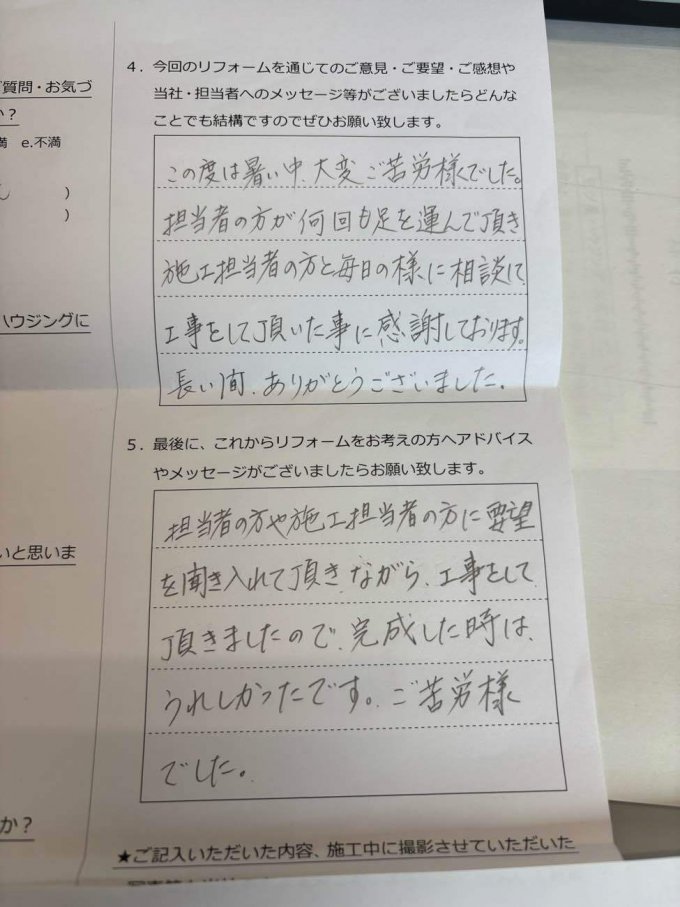 質問・お気づ
か？
満　e.不満
)
)
ハウジングに
いと思いま
か？
4．今回のリフォームを通じてのご意見・ご要望・ご感想や
当社・担当者へのメッセージ等がございましたらどんな
ことでも結構ですのでぜひお願い致します。
この度は、暑い中、大変ご苦労様でした。
担当者の方が何回も足を運んで頂き
施工担当者の方と毎日の様に相談して
工事をして頂いた事に感謝しております。
長い間、ありがとうございました。
5．最後に、これからリフォームをお考えの方へアドバイス
やメッセージがございましたらお願い致します。
担当者の方や施工担当者の方に要望
を聞き入れて頂き、ながら、工事をして
頂きましたので、完成した時は、
うれしかったです。ご苦労様
でした。
★ご記入いただいた内容、施工中に撮影させていただいた